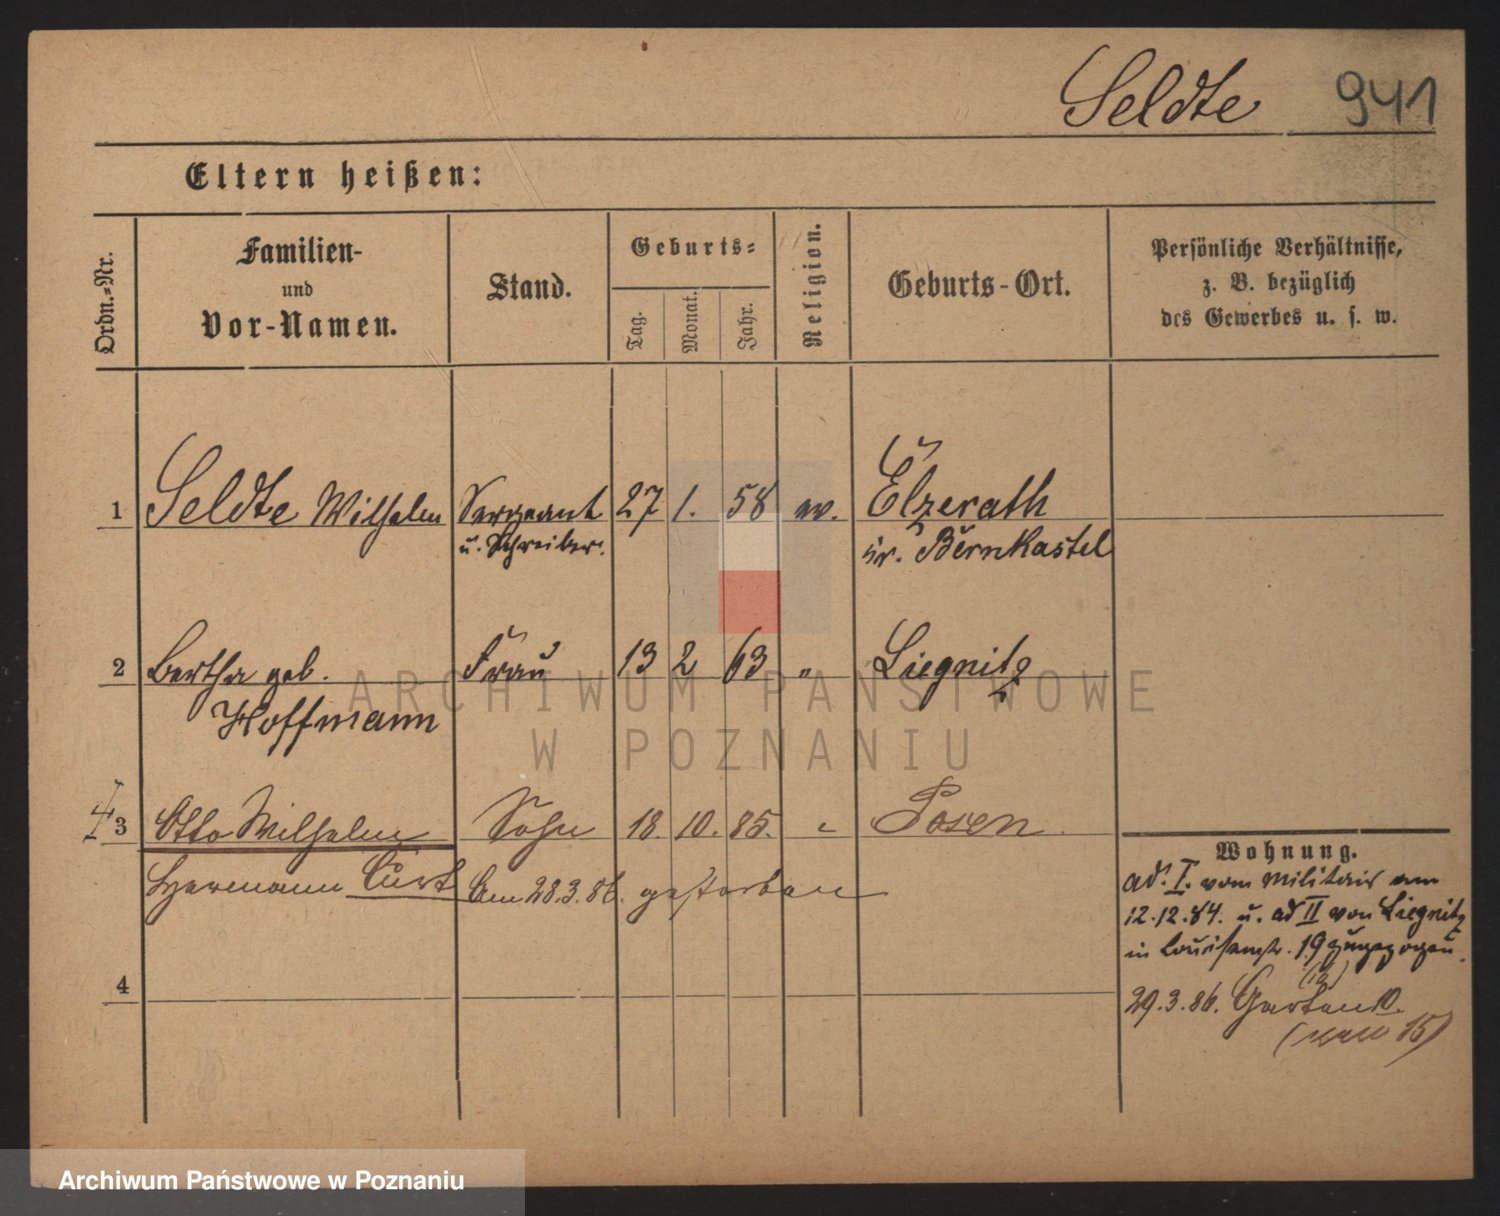 Seldte 941
Eltern heißen:
Ordn.-Nr.
Familien-
und
Vor-Namen.
Stand.
Geburts-
Tag.
Monat.
Jahr.
Religion.
Geburts-Ort.
Persönliche Verhältnisse,
z. B. bezüglich
des Gewerbes u. s. w.
1 Seldte Wilhelm Sergeant 27 1. 58 ev. Elzerath
u. Schreiber. Kr. Bernkastel
2 Bertha geb. Frau 13 2 63 " Liegnitz
Hoffmann
3 Otto Wilhelm Sohn 18. 10. 85. " Posen
Hermann Curt Am 28.3.86. gestorben
4
Wohnung.
ad. I. vom Militair am
12.12.84. u. ad II von Liegnitz
in Louisenstr. 19 zugezogen.
29.3.86. Garten 10.
(neu 15)
ARCHIWUM PAŃSTWOWE
W POZNANIU
Archiwum Państwowe w Poznaniu